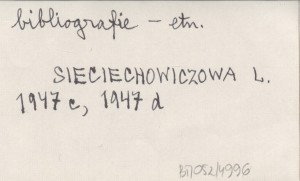 bibliografie – etn.
SIECIECHOWICZOWA L.
1947 c, 1947 d
BJ/052/4996